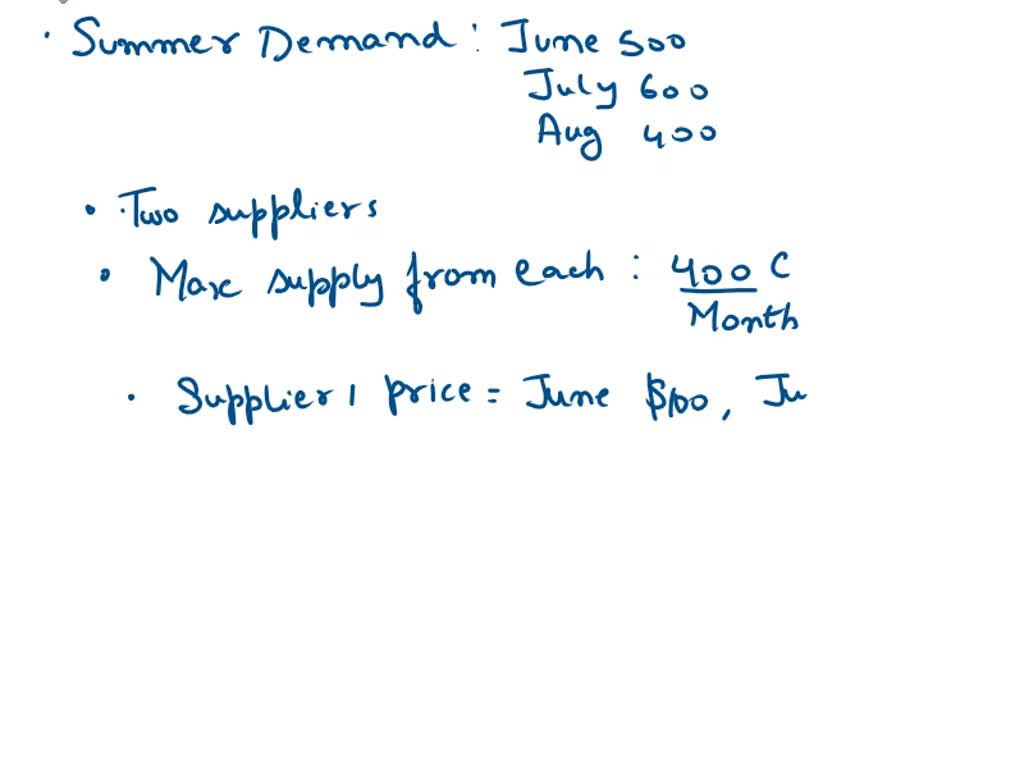 · Summer Demand : June 500
July 600
Aug 400
· Two suppliers
· Max supply from each : 400 C
Month
· Supplier 1 price = June $100, Ju